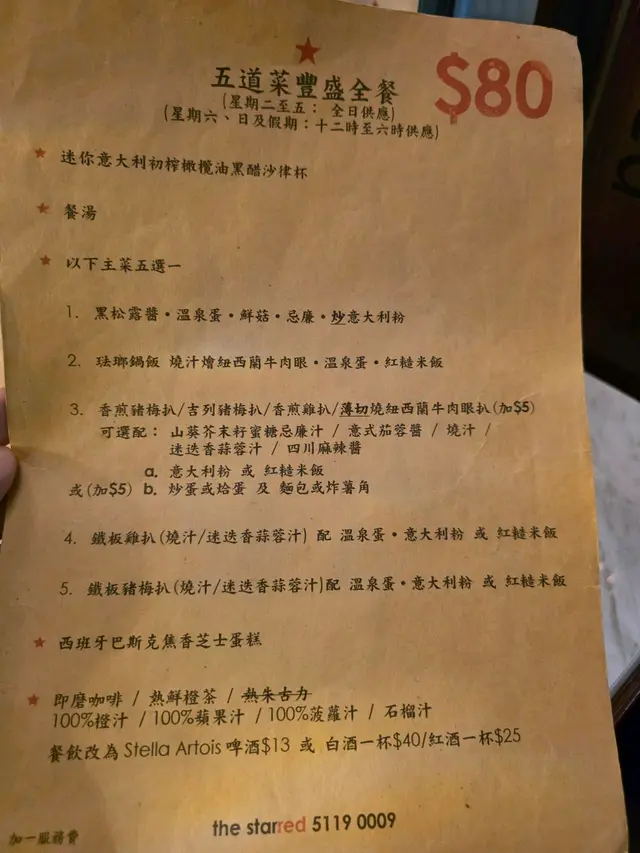 五道菜豐盛全餐
$80
(星期二至五： 全日供應)
(星期六、日及假期：十二時至六時供應)
迷你意大利初榨橄欖油黑醋沙律杯
餐湯
以下主菜五選一
1. 黑松露醬•溫泉蛋•鮮菇•忌廉•炒意大利粉
2. 琺瑯鍋飯 燒汁燴紐西蘭牛肉眼•溫泉蛋•紅糙米飯
3. 香煎豬梅扒/吉列豬梅扒/香煎雞扒/薄切燒紐西蘭牛肉眼扒(加$5)
可選配： 山葵芥末籽蜜糖忌廉汁 / 意式茄蓉醬 / 燒汁 /
迷迭香蒜蓉汁 / 四川麻辣醬
a. 意大利粉 或 紅糙米飯
或(加$5) b. 炒蛋或烚蛋 及 麵包或炸薯角
4. 鐵板雞扒(燒汁/迷迭香蒜蓉汁) 配 溫泉蛋•意大利粉 或 紅糙米飯
5. 鐵板豬梅扒(燒汁/迷迭香蒜蓉汁)配 溫泉蛋•意大利粉 或 紅糙米飯
西班牙巴斯克焦香芝士蛋糕
即磨咖啡 / 熱鮮橙茶 / 熱朱古力
100%橙汁 / 100%蘋果汁 / 100%菠蘿汁 / 石榴汁
餐飲改為 Stella Artois 啤酒$13 或 白酒一杯$40/紅酒一杯$25
the starred 5119 0009
加一服務費